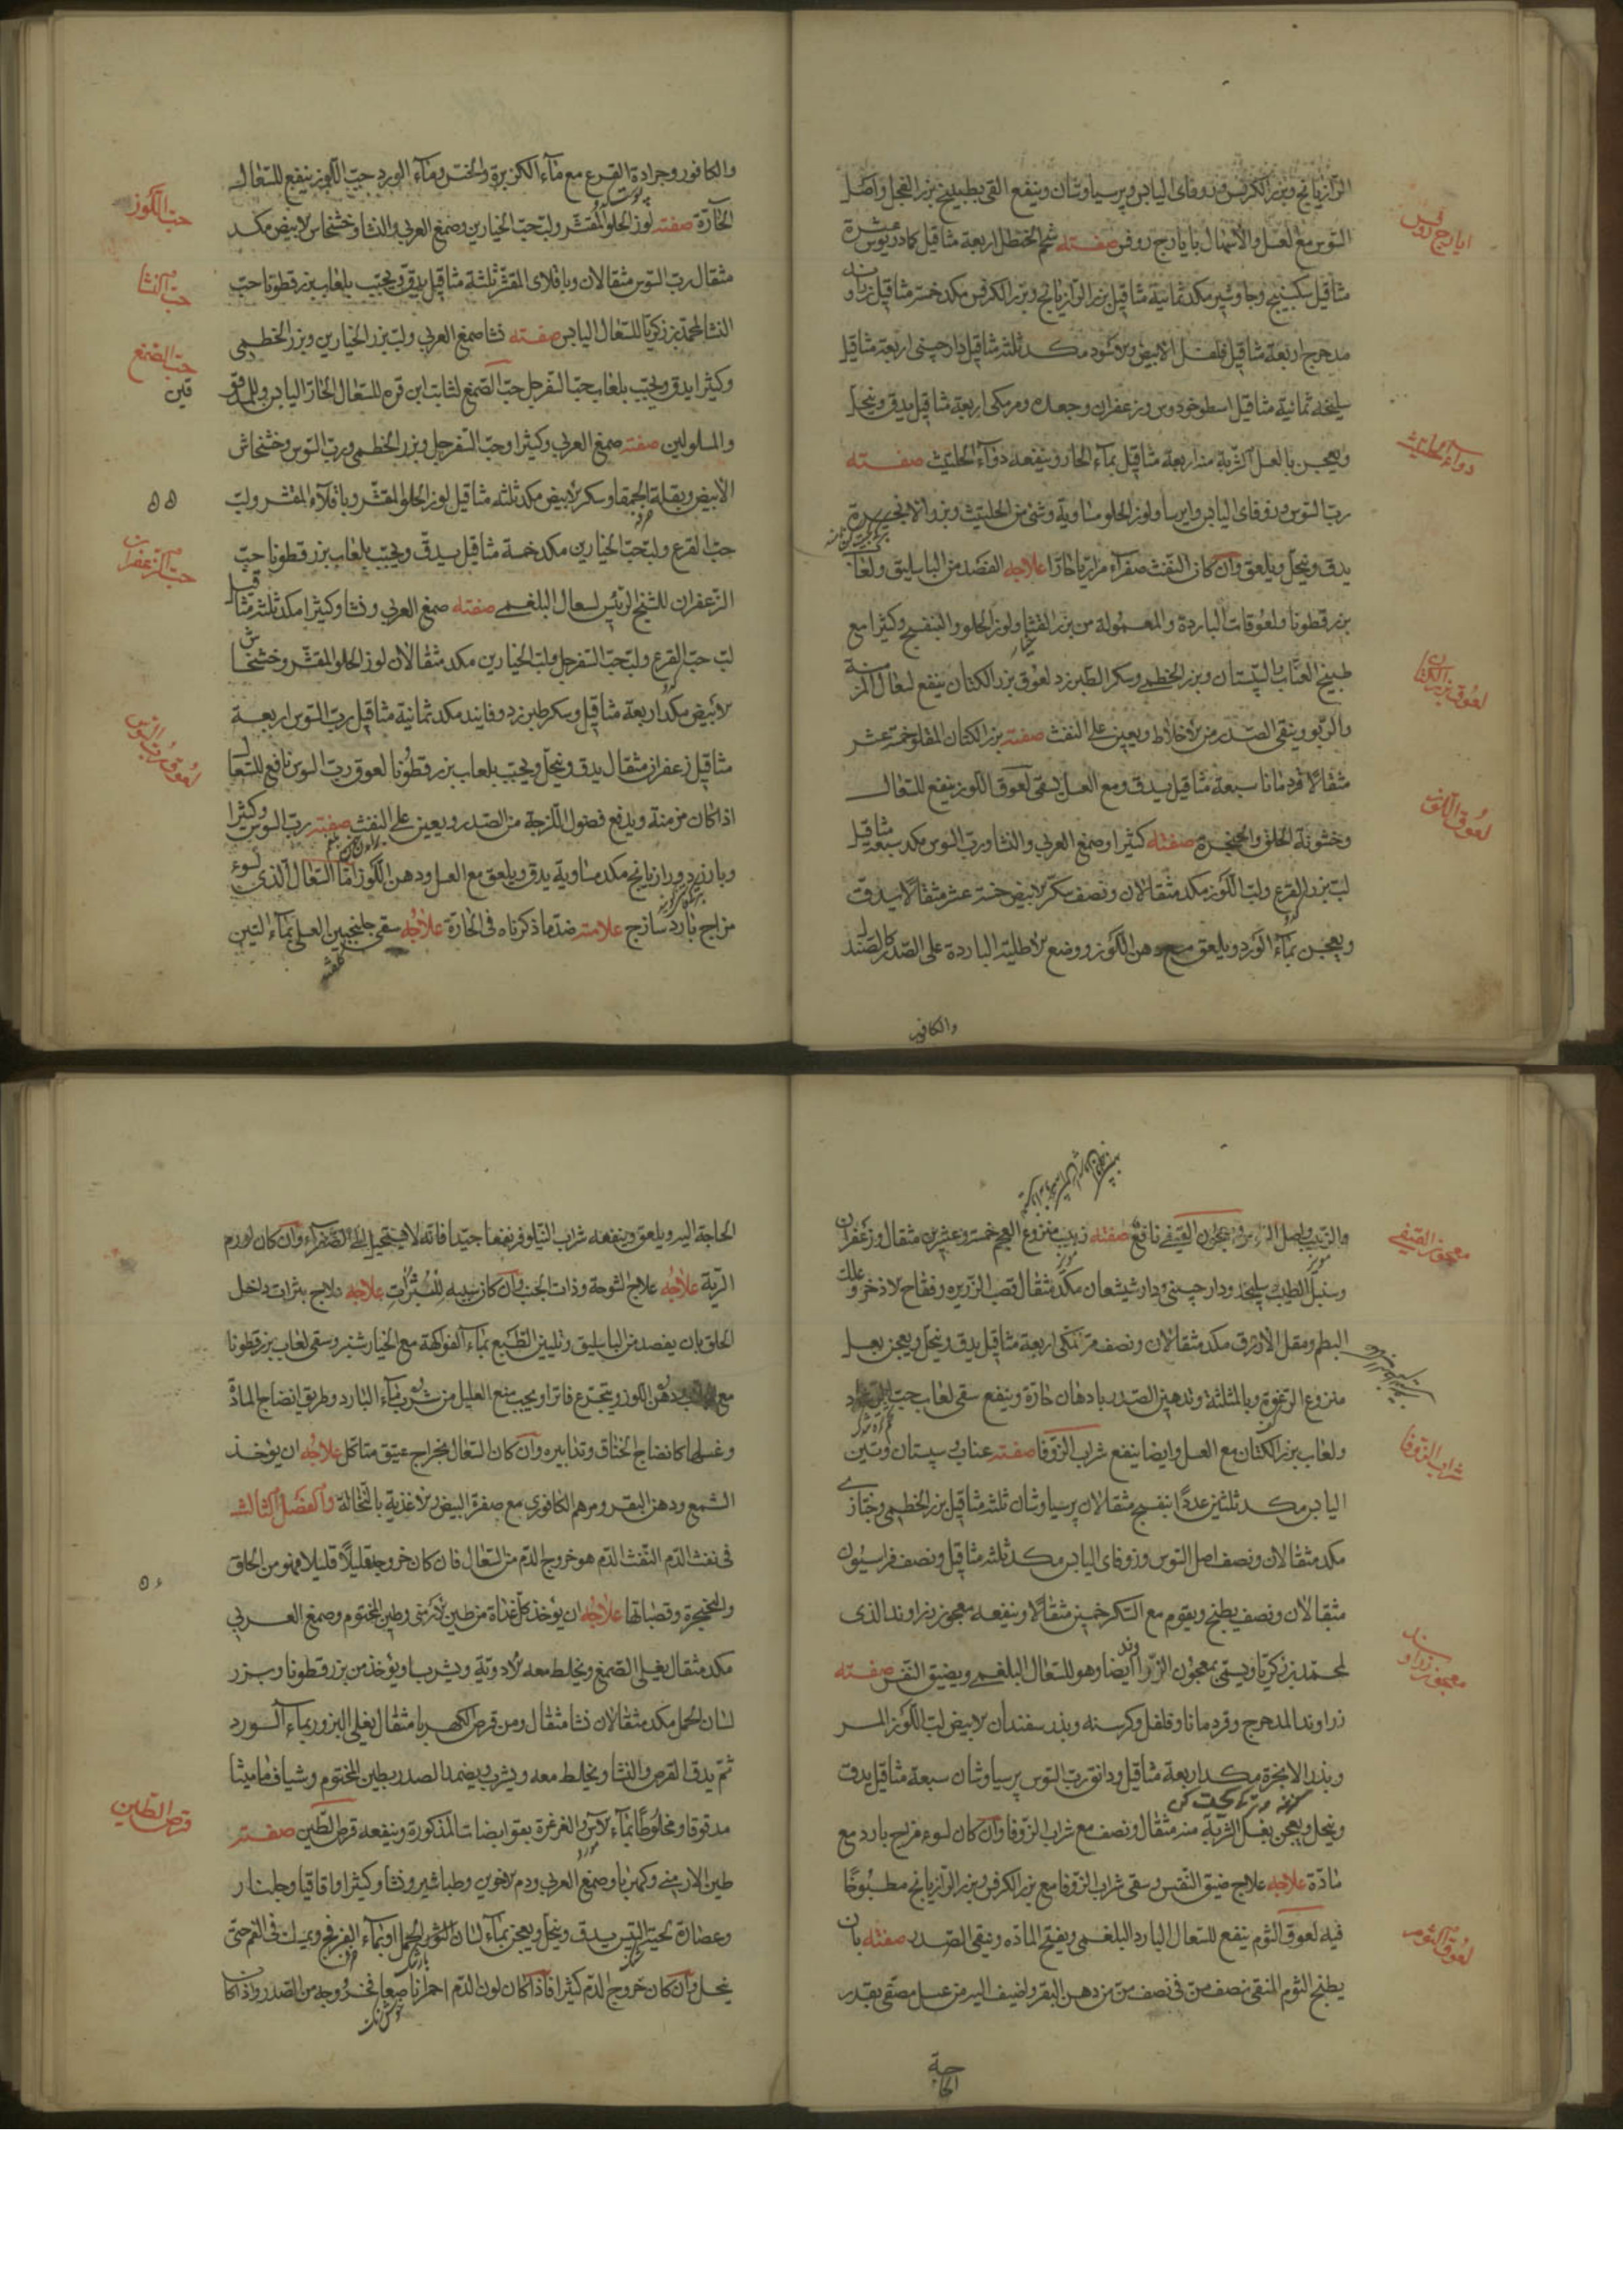 الرازيانج وبزر الكرفس وزوفاى اليابس وپرسياوشان وينفع القى بطبيخ بزر الفجل واصل
السوس مع العسل والاسهال بايارج روفس صفته شحم الحنظل اربعة مثاقيل كمادريوس عشرة
مثاقيل سكبينج وجاوشير مكد ثمانية مثاقيل بزر الرازيانج وبزر الكرفس مكد خمسة مثاقيل زراوند
مدحرج اربعة مثاقيل فلفل الابيض والاسود مكد ثلثة مثاقيل دارچينى اربعة مثاقيل
سليخه ثمانية مثاقيل اسطوخودوس وزعفران وجعده ومرمكى اربعة مثاقيل يدق وينخل
ويعجن بالعسل الشربة منه اربعة مثاقيل بماء الحار وينفعه دواء الحلتيت صفته
رب السوس وزوفاى اليابس وايرسا ولوز الحلو مساوية وشئ من الحلتيت وبزر الانجرة
يدق وينخل ويلعق وان كان النفث صفراء مراريا حارا علاجه الفصد من الباسليق ولعاب
بزر قطونا ولعوقات الباردة والمعمولة من بزر القثاء ولوز الحلو والبنفسج وكثيرا مع
طبيخ العناب والسپستان وبزر الخطمى وسكر الطبرزد لعوق بزر الكتان ينفع لسعال المزمنة
والربو وينقى الصدر من الاخلاط ويعين على النفث صفته بزر الكتان المقلو خمسة عشر
مثقالا قردمانا سبعة مثاقيل يدق ومع العسل يسقى لعوق اللوز ينفع للسعال
وخشونة الحلق والحنجرة صفته كثيرا وصمغ العربى والنشا ورب السوس مكد سبعة مثاقيل
لب بزر القرع ولب اللوز مكد مثقالان ونصف سكر الابيض خمسة عشر مثقالا يدق
ويعجن بماء الورد ويلعق مع دهن اللوز ووضع الاطلية الباردة على الصدر كالصندل
والكافور
ايارج روفس
دواء الحلتيت
لعوق بزر الكتان
لعوق اللوز
والكافور وجرادة القرع مع ماء الكزبرة والخس وماء الورد حب اللوز ينفع للسعال
الحارة صفته لوز الحلو المقشر ولب حب الخيارين وصمغ العربى والنشا وخشخاش الابيض مكد
مثقال رب السوس مثقالان وباقلاى المقشر ثلثة مثاقيل يدق ويحبب بلعاب بزر قطونا حب
النشا لمحمد بن زكريا للسعال اليابس صفته نشا صمغ العربى ولب بزر الخيارين وبزر الخطمى
وكثيرا يدق ويحبب بلعاب حب السفرجل حب الصمغ لثابت ابن قره للسعال الحار اليابس وللمدقوقين
والمسلولين صفته صمغ العربى وكثيرا وحب السفرجل وبزر الخطمى ورب السوس وخشخاش
الابيض وبقلة الحمقا وسكر الابيض مكد ثلثه مثاقيل لوز الحلو المقشر وباقلاء المقشر ولب
حب القرع ولب حب الخيارين مكد خمسة مثاقيل يدق ويحبب بلعاب بزر قطونا حب
الزعفران للشيخ الرئيس لسعال البلغمى صفته صمغ العربى ونشا وكثيرا مكد ثلثة مثاقيل
لب حب القرع ولب حب السفرجل ولب الخيارين مكد مثقالان لوز الحلو المقشر وخشخاش
الابيض مكد اربعة مثاقيل وسكر طبرزد وفانيد مكد ثمانية مثاقيل رب السوس اربعة
مثاقيل زعفران مثقال يدق وينخل ويحبب بلعاب بزر قطونا لعوق رب السوس نافع للسعال
اذا كان مزمنة ويدفع فضول اللزجة من الصدر ويعين على النفث صفته رب السوس وكثيرا
وبارزد ورازيانج مكد مساوية يدق ويلعق مع العسل ودهن اللوز اما السعال الذى لسوء
مزاج بارد ساذج علامته ضد ما ذكرناه فى الحارة علاجه سقى جلنجبين العسلى بماء التين
حب اللوز
حب النشا
حب الصمغ
٥٥
حب الزعفران
لعوق رب السوس
والزبيب واصل السوس ومعجون القيفى نافع صفته زبيب منزوع العجم خمسة وعشرين مثقال وزعفران
وسنبل الطيب سليخه ودارچينى ودارشيشعان مكد مثقال قصب الزريره وفقاح الاذخر وعلك
البطم ومقل الازرق مكد مثقالان ونصف مرمكى اربعة مثاقيل يدق وينخل ويعجن بعسل
منزوع الرغوة وبالمثلثة وتدهين الصدر بادهان حارة وينفع سقى لعاب حب الرشاد
ولعاب بزر الكتان مع العسل وايضا ينفع شراب الزوفا صفته عناب سپستان وتين
اليابس مكد ثلثين عددا بنفسج مثقالان پرسياوشان ثلثة مثاقيل بزر الخطمى وخبازى
مكد مثقالان ونصف اصل السوس وزوفاى اليابس مكد ثلثه مثاقيل ونصف فراسيون
مثقالان ونصف يطبخ ويقوم مع السكر خمسين مثقالا وينفعه معجون زراوند الذى
لمحمد بن زكريا ويسمى بمعجون الزراوند ايضا وهو للسعال البلغمى وبضيق النفس صفته
زراوند المدحرج وقردمانا وفلفل وكرسنه وبذر سفندان الابيض لب اللوز المر
وبذر الانجرة مكد اربعة مثاقيل ودانق رب السوس پرسياوشان سبعة مثاقيل يدق
وينخل ويعجن بعسل الشربة منه مثقال ونصف مع شراب الزوفا وان كان لسوء مزاج بارد مع
مادة علاجه علاج ضيق النفس وسقى شراب الزوفا مع بزر الكرفس وبزر الرازيانج مطبوخا
فيه لعوق الثوم ينفع للسعال البارد البلغمى ويفتح الماده وينقى الصدر صفته بان
يطبخ الثوم المنقى نصف من فى نصف من من دهن البقر واضيف اليه من عسل مصفى بقدر
الحاجة
معجون القيفى
شراب الزوفا
معجون زراوند
لعوق الثوم
الحاجة اليه ويلعق وينفعه شراب النيلوفر نفعا جيدا فانه لا يستحيل الى الصفراء وان كان لورم
الرية علاجه علاج الشوحة وذات الجنب وان كان سببه للبثرات علاجه علاج بثرات داخل
الحلق بان يفصد من الباسليق وتليين الطبع بماء الفواكهة مع الخيارشنبر وسقى لعاب بزر قطونا
مع دهن اللوز ويتجرع فاترا ويجب منع العليل من شرب ماء البارد وطريق انضاج المادة
وغسلها كانضاج الخناق وتدابيره وان كان السعال بخراج عتيق متاكل علاجه ان يؤخذ
الشمع ودهن البقر ومرهم الكافورى مع صفرة البيض والاغذية بالنخالة والفصل الثالث
فى نفث الدم النفث الدم هو خروج الدم من السعال فان كان خروجه قليلا قليلا فهو من الحلق
والحنجرة وقصباتها علاجه ان يؤخذ كل غداة من طين الارمنى وطين المختوم وصمغ العربى
مكد مثقال يغلى الصمغ ويخلط معه الادوية ويشرب او يؤخذ من بزر قطونا وبزر
لسان الحمل مكد مثقالان نشا مثقال ومن قرص الكهربا مثقال يغلى البزور بماء الورد
ثم يدق القرص والنشا ويخلط معه ويشرب ويضمد الصدر بطين المختوم وشياف ماميثا
مدقوقا ومخلوطا بماء الاس والغرغرة بقوابضات المذكورة وينفعه قرص الطين صفته
طين الارمنى وكهربا وصمغ العربى ودم الاخوين وطباشير ونشا وكثيرا واقاقيا وجلنار
وعصارة لحية التيس يدق وينخل ويعجن بماء لسان الثور الحمل او بماء الفرفج ويمسك فى الفم حتى
ينحل وان كان خروج الدم كثيرا فاذا كان لون الدم احمر ناصعا فخروجه من الصدر واذا كان
٥٦
قرص الطين